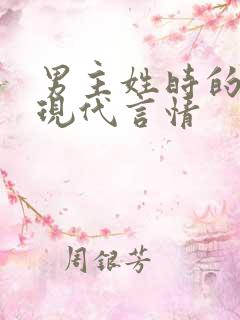 男主姓時的
現代言情
周銀芳